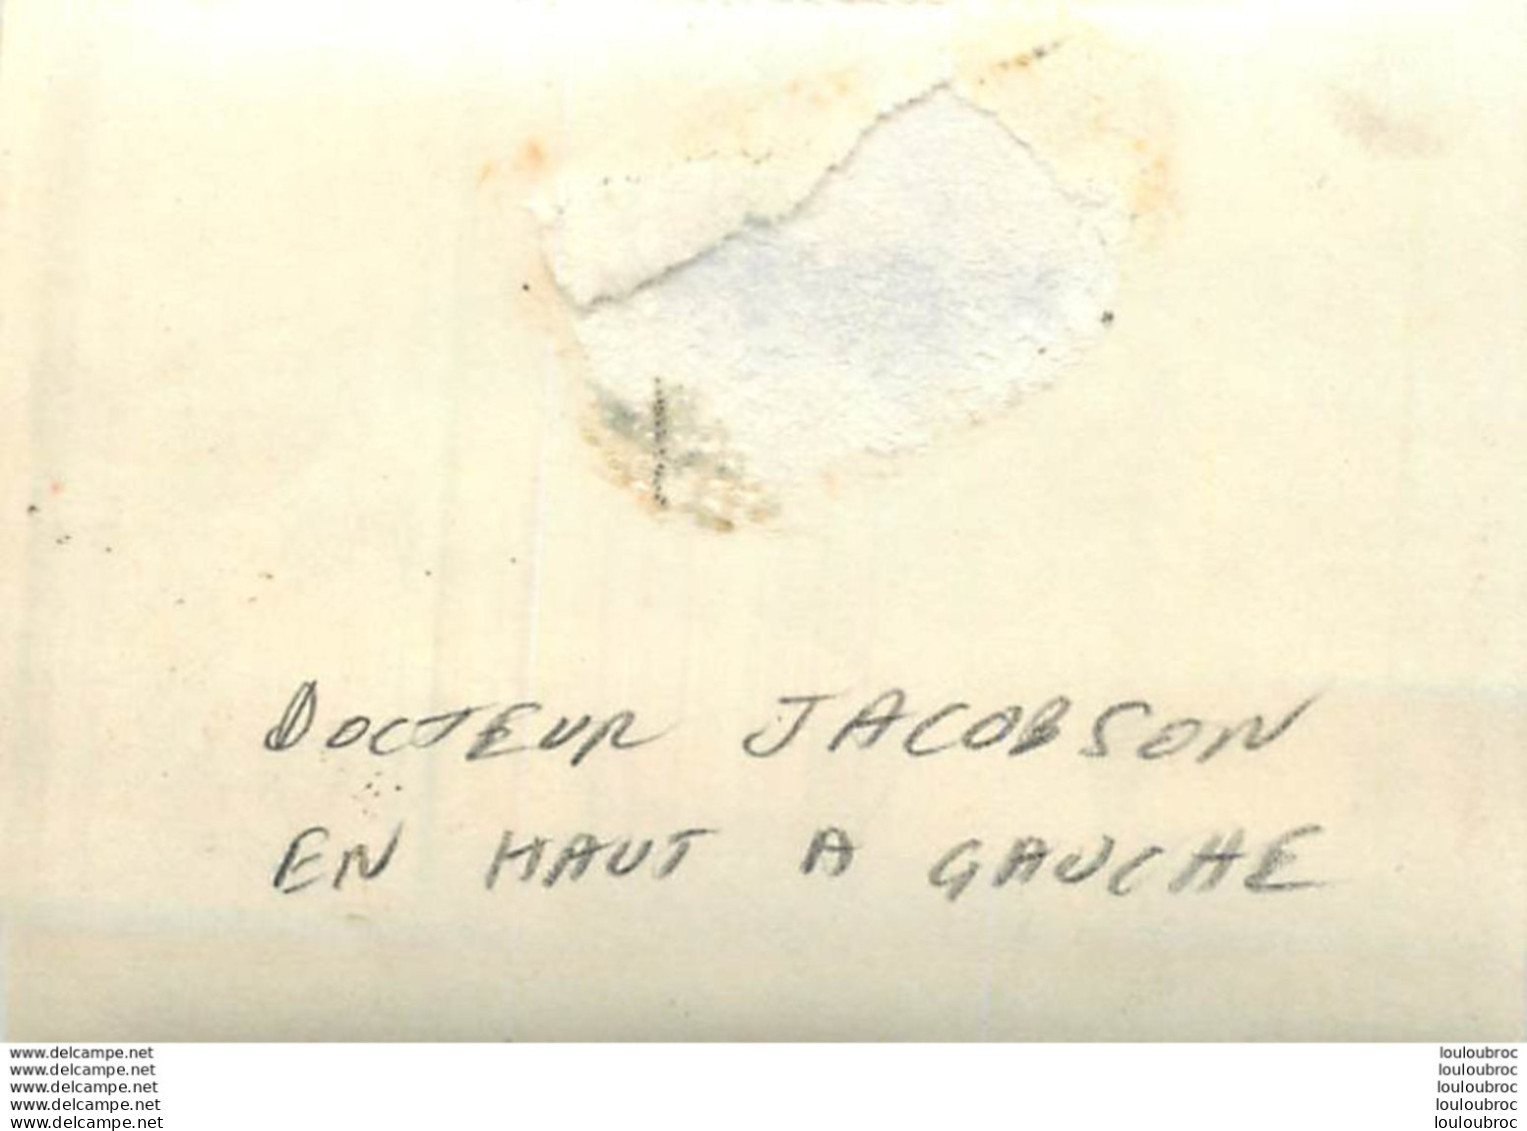 DOCTEUR JACOBSON
EN HAUT A GAUCHE
www.delcampe.net
www.delcampe.net
www.delcampe.net
www.delcampe.net
www.delcampe.net
louloubroc
louloubroc
louloubroc
louloubroc
louloubroc